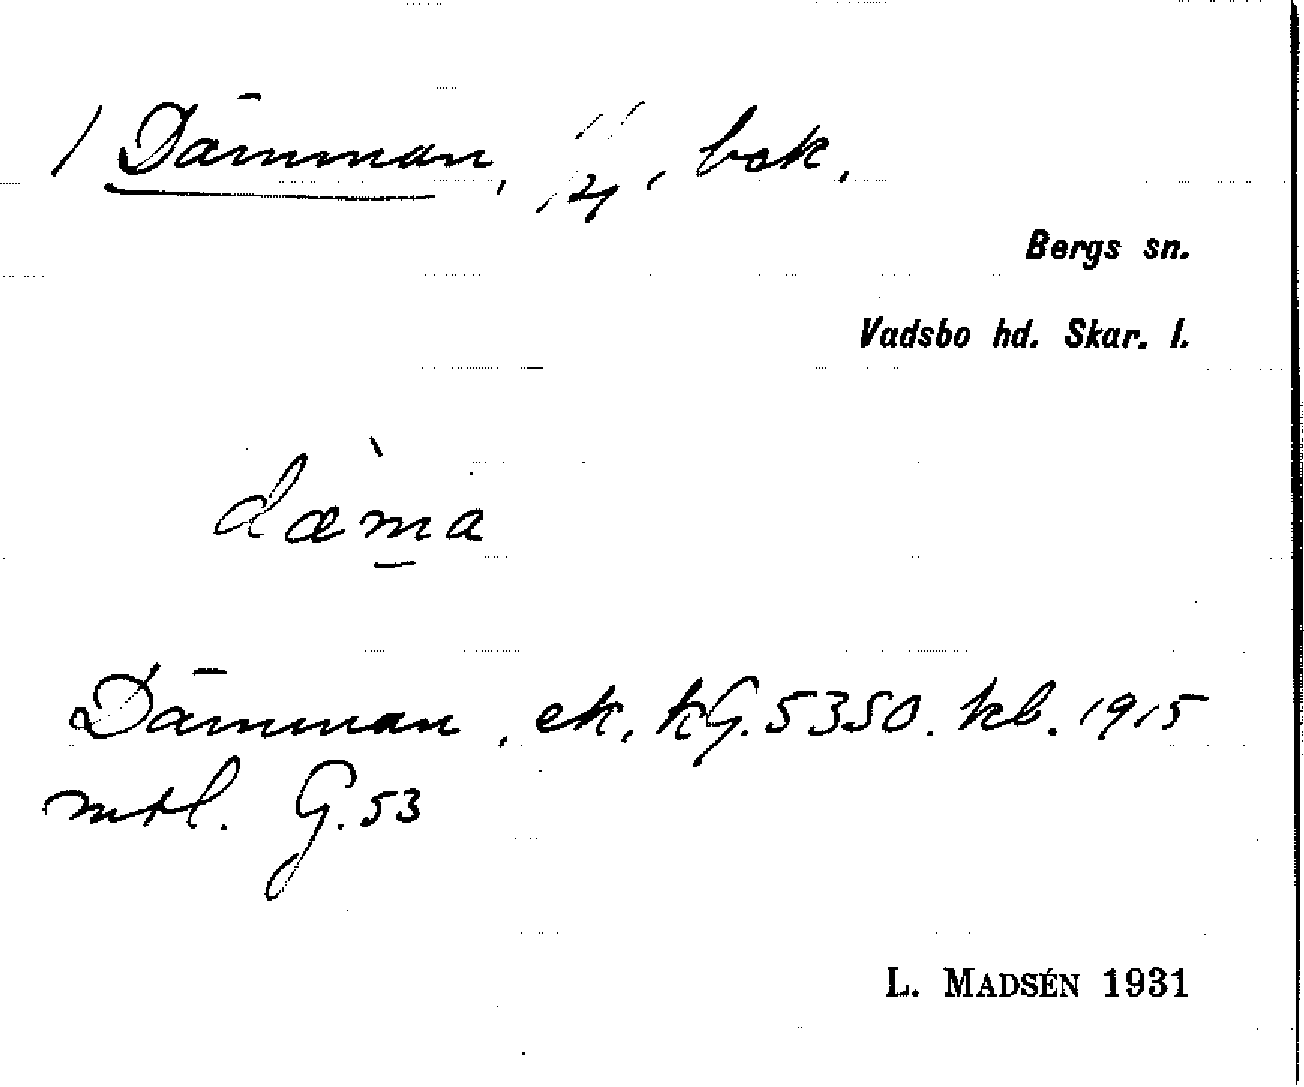 1 Dämman, 1/4, bok.
Bergs sn.
Vadsbo hd. Skar. l.
dæ̀ma
Dämman, ek. kG. 5350. kb. 1915
mtl. G. 53
L. MADSÉN 1931